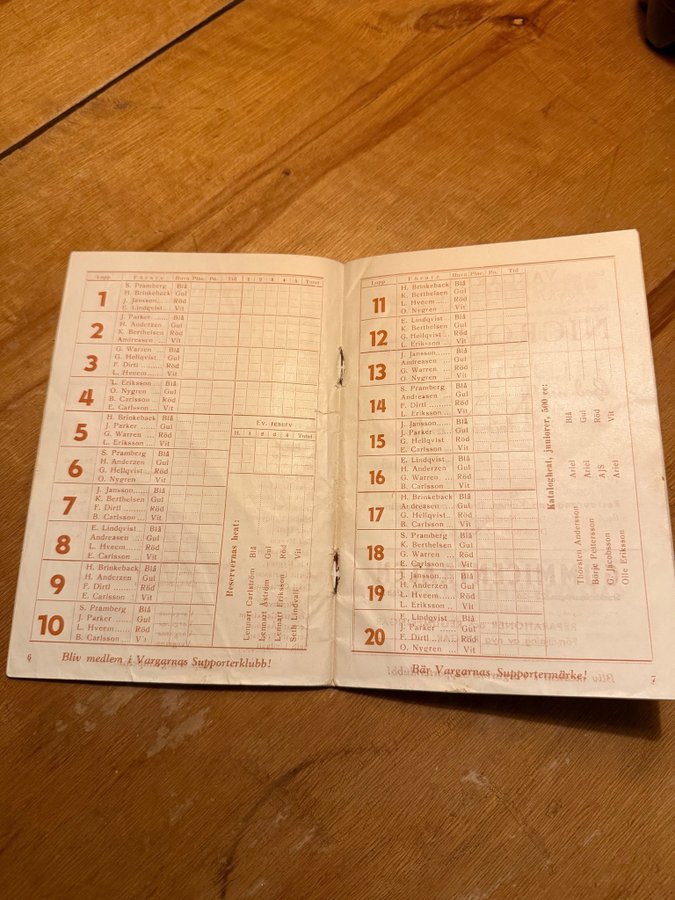 Lopp Förare Huva Plac. Po. Tid 1 2 3 4 5 Total
1
S. Pramberg Blå
H. Brinkeback Gul
J. Jansson...... Röd
E. Lindqvist Vit
2
J. Parker ...... Blå
H. Anderzen Gul
K. Berthelsen Röd
Andreasen ... Vit
3
G. Warren ... Blå
G. Hellqvist.. Gul
F. Dirtl ......... Röd
L. Hveem ... Vit
4
L. Eriksson ... Blå
O. Nygren ... Gul
B. Carlsson ... Röd
E. Carlsson ... Vit
5
H. Brinkeback Blå
J. Parker ...... Gul
G. Warren ... Röd
L. Eriksson ... Vit
6
S. Pramberg Blå
H. Anderzen Gul
G. Hellqvist Röd
O. Nygren ... Vit
7
J. Jansson...... Blå
K. Berthelsen Gul
F. Dirtl ......... Röd
B. Carlsson ... Vit
8
E. Lindqvist Blå
Andreasen ... Gul
L. Hveem ... Röd
E. Carlsson ... Vit
9
H. Brinkeback Blå
H. Anderzen Gul
F. Dirtl ......... Röd
E. Carlsson ... Vit
10
S. Pramberg Blå
J. Parker ...... Gul
L. Hveem...... Röd
B. Carlsson ... Vit
Ev. reserv
H. 1 2 3 4 Total
Reservernas heat:
Lennart Carlström Blå
Lennart Åström Gul
Lennart Eriksson Röd
Seth Lindvall Vit
6
Bliv medlem i Vargarnas Supporterklubb!
Lopp Förare Huva Plac. Po. Tid
11
H. Brinkeback Blå
K. Berthelsen Gul
L. Hveem ... Röd
O. Nygren ... Vit
12
E. Lindqvist Blå
K. Berthelsen Gul
G. Hellqvist Röd
L. Eriksson ... Vit
13
J. Jansson...... Blå
Andreasen ... Gul
G. Warren ... Röd
O. Nygren ... Vit
14
S. Pramberg Blå
Andreasen ... Gul
F. Dirtl ......... Röd
L. Eriksson ... Vit
15
J. Jansson...... Blå
J. Parker ...... Gul
G. Hellqvist Röd
E. Carlsson ... Vit
16
E. Lindqvist Blå
H. Anderzen Gul
G. Warren ... Röd
B. Carlsson ... Vit
17
H. Brinkeback Blå
Andreasen ... Gul
G. Hellqvist... Röd
B. Carlsson ... Vit
18
S. Pramberg Blå
K. Berthelsen Gul
G. Warren ... Röd
E. Carlsson ... Vit
19
J. Jansson...... Blå
H. Anderzen Gul
L. Hveem...... Röd
L. Eriksson ... Vit
20
E. Lindqvist Blå
J. Parker ...... Gul
F. Dirtl ......... Röd
O. Nygren ... Vit
Katalogheat, juniorer, 500 cc:
Thorsten Andersson Ariel Blå
Börje Pettersson Ariel Gul
Jacobsson AJS Röd
Olle Eriksson Ariel Vit
Bär Vargarnas Supportermärke!
7